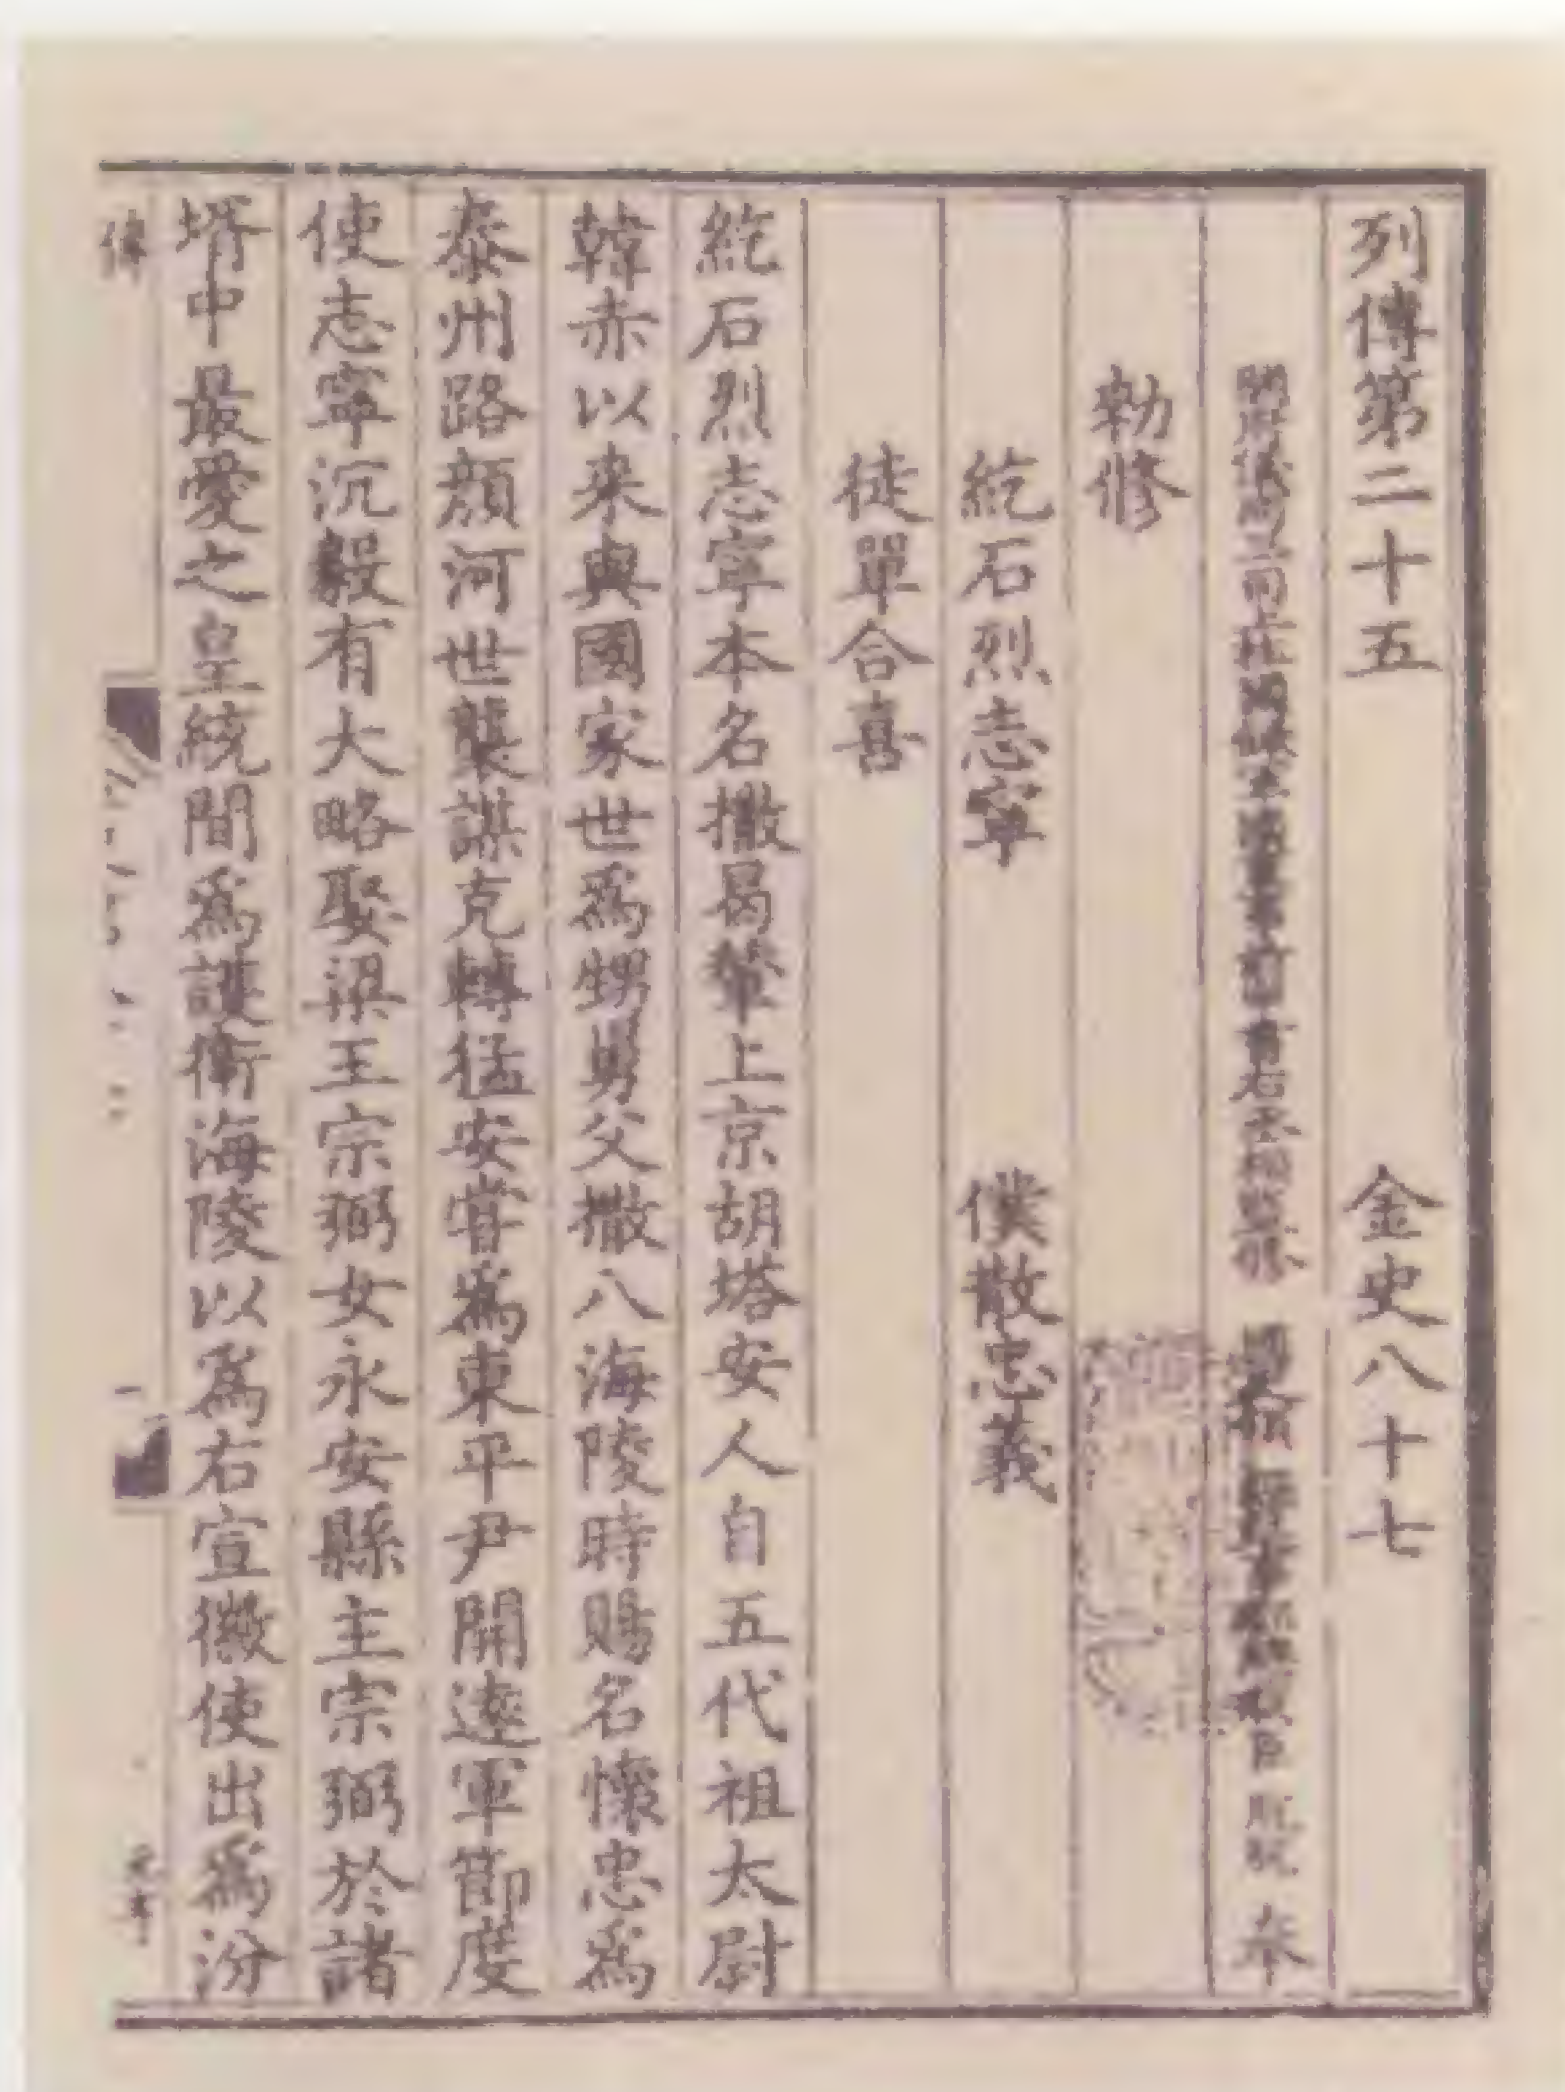 列傳第二十五 金史八十七
開府儀同三司上柱國錄軍國重事前中書右丞相監修國史領經筵事都總裁臣脫脫奉
勑修
紇石烈志寧 僕散忠義
徒單合喜
紇石烈志寧本名撒曷輦上京胡塔安人自五代祖太尉
韓赤以来與國家世爲甥舅父撒八海陵時賜名懷忠爲
泰州路顔河世襲謀克轉猛安甞爲東平尹開逺軍節度
使志寧沉毅有大略娶梁王宗弼女永安縣主宗弼於諸
壻中最愛之皇統間爲護衛海陵以爲右宣徽使出爲汾